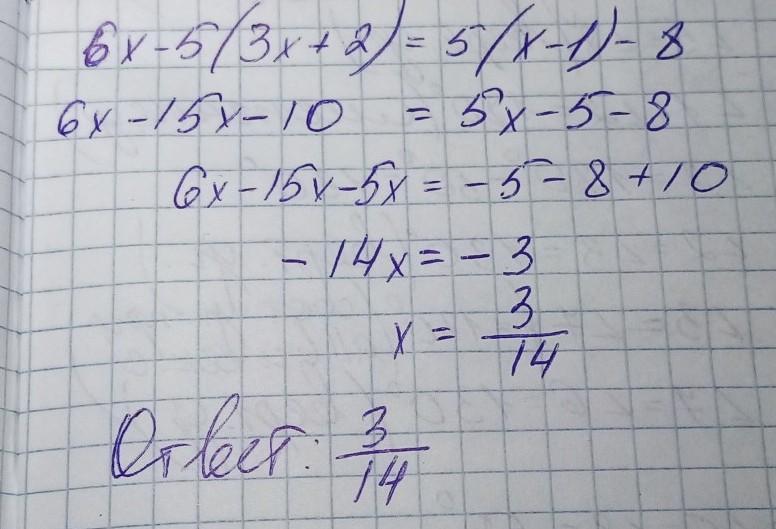 6x-5(3x+2)=5(x-1)-8
6x-15x-10 = 5x-5-8
6x-15x-5x=-5-8+10
-14x=-3
x= 3/14
Ответ: 3/14